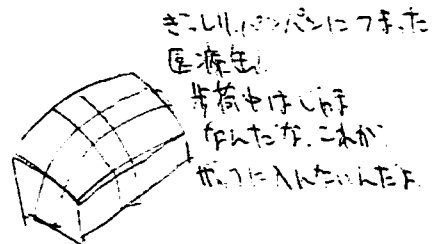 ぎっしり、パンパンにつまった
医療缶。
歩荷中はじゃま
なんだな、これが
ザックに入んないんだよ